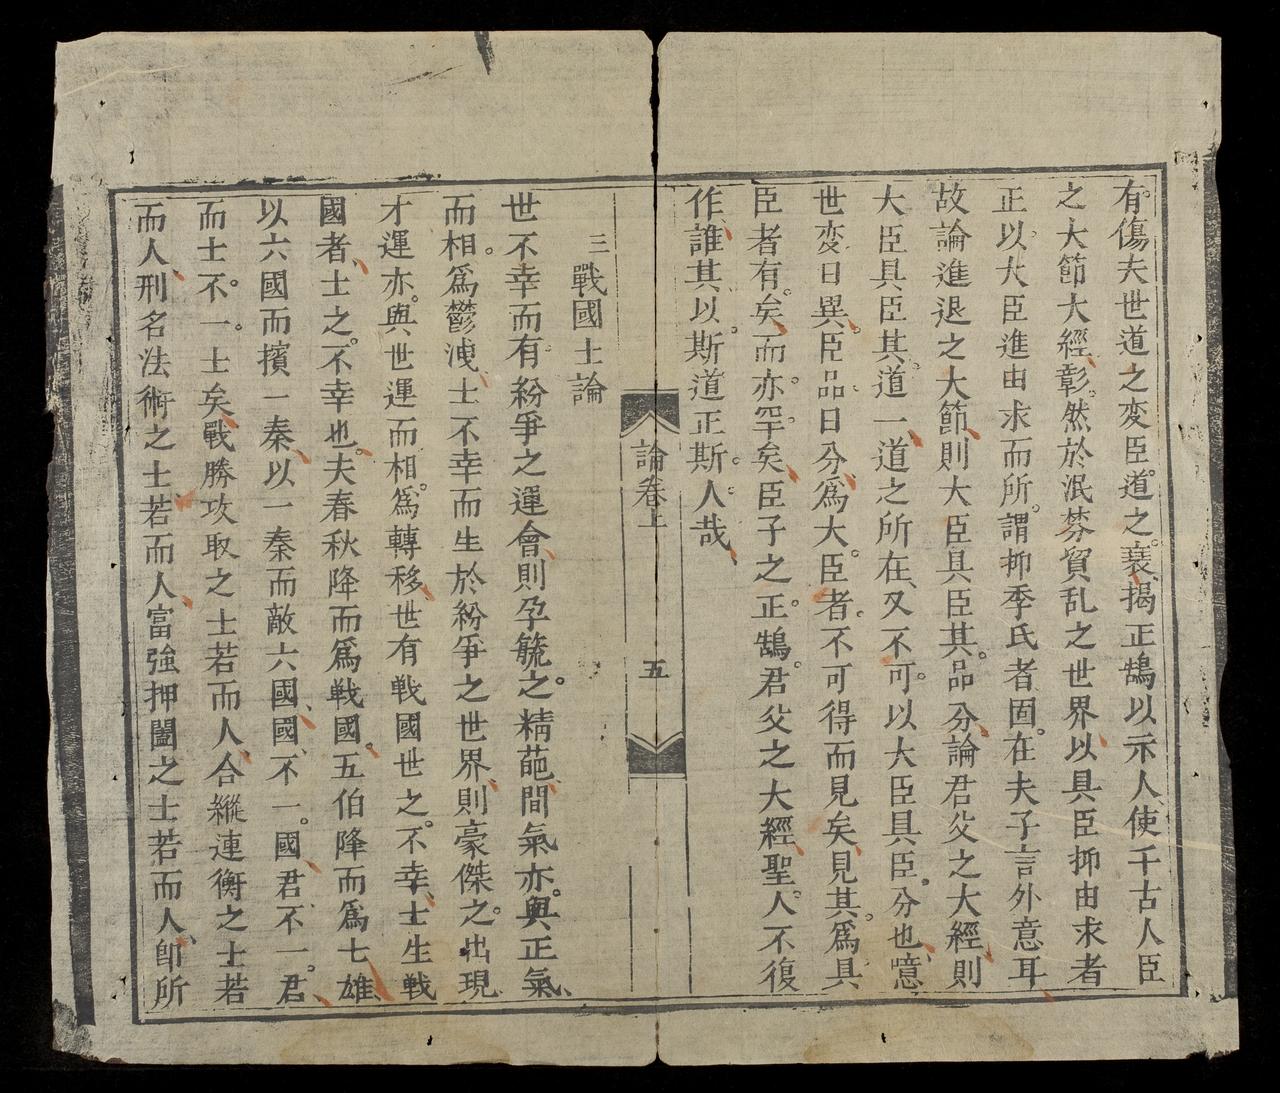 有傷夫世道之変臣道之衰揭正鵠以示人使千古人臣
之大節大經彰然於泯棼貿乱之世界以具臣抑由求者
正以大臣進由求而所謂抑季氏者固在夫子言外意耳
故論進退之大節則大臣具臣其品分論君父之大經則
大臣具臣其道一道之所在又不可以大臣具臣分也噫
世変日異臣品日分為大臣者不可得而見矣見其為具
臣者有矣而亦罕矣臣子之正鵠君父之大經聖人不復
作誰其以斯道正斯人哉
論卷上
五
三戰國士論
世不幸而有紛爭之運會則孕毓之精葩間氣亦與正氣
而相為鬱洩士不幸而生於紛爭之世界則豪傑之出現
才運亦與世運而相為轉移世有戦國世之不幸士生戦
國者士之不幸也夫春秋降而為戦國五伯降而為七雄
以六國而擯一秦以一秦而敵六國國不一國君不一君
而士不一士矣戰勝攻取之士若而人合縱連衡之士若
而人刑名法術之士若而人富強押闔之士若而人卽所